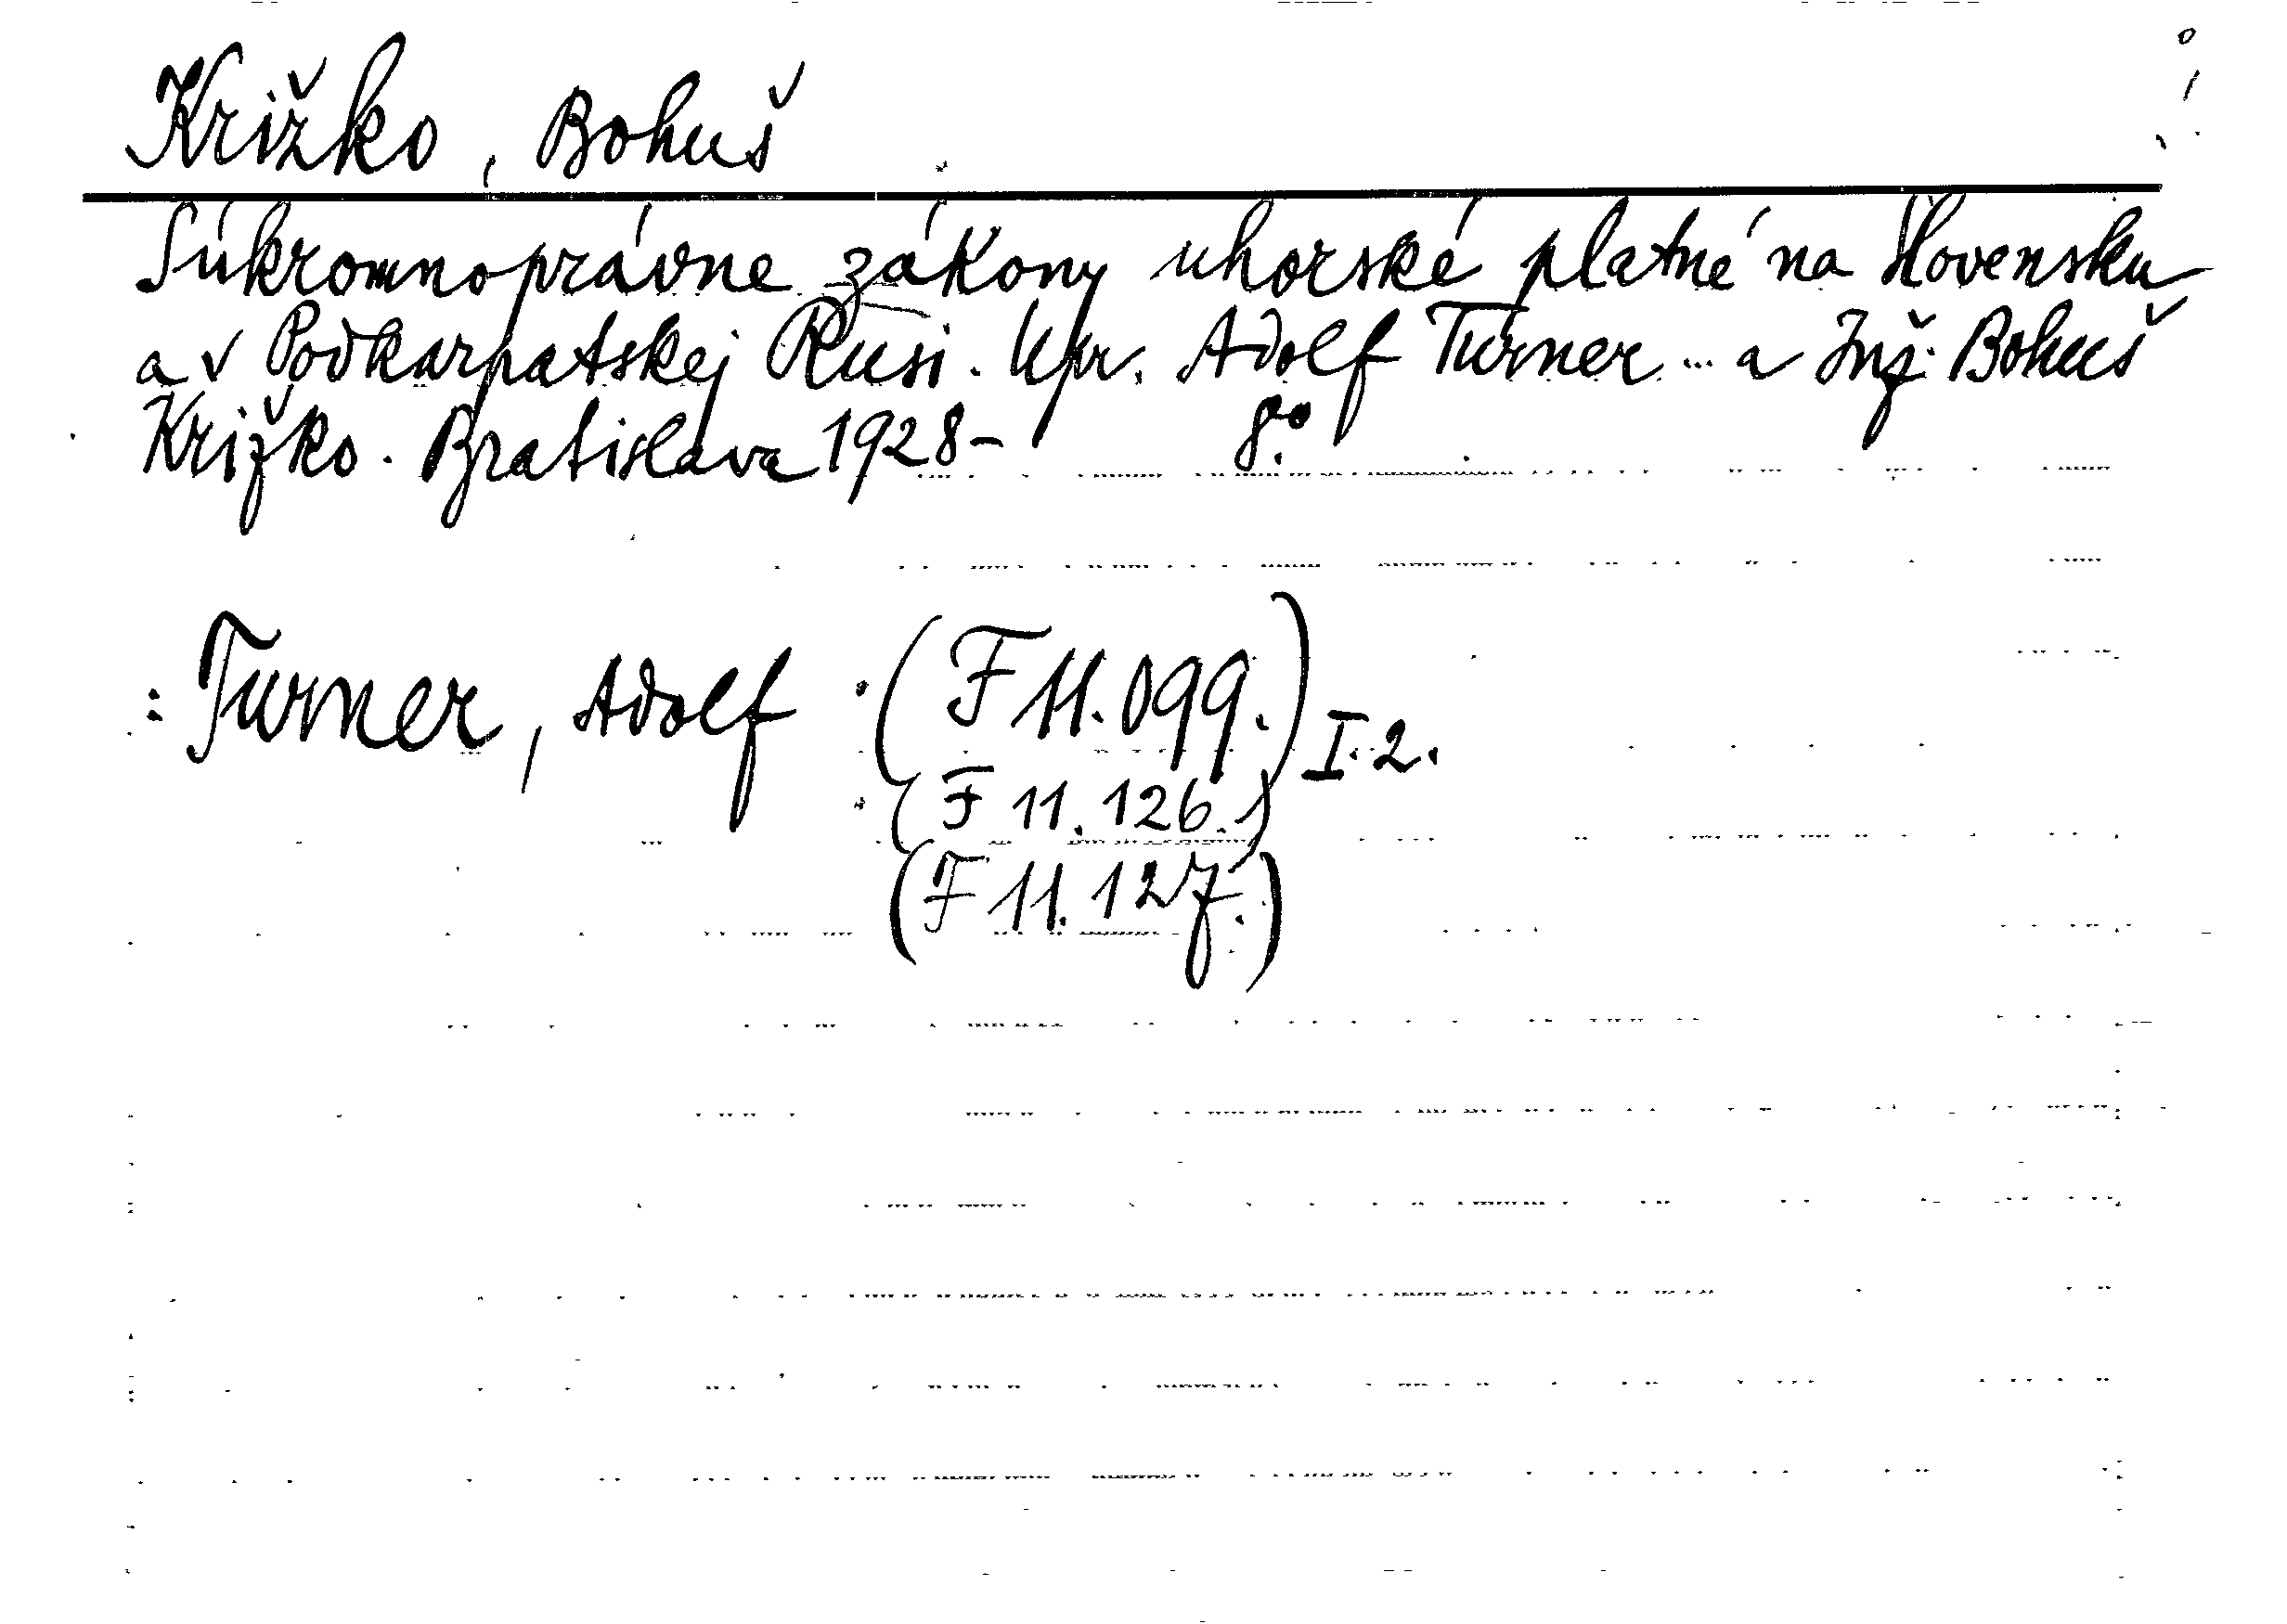 Križko, Bohuš
Súkromnoprávne zákony uhorské platné na Slovensku
a v Podkarpatskej Rusi. Upr. Adolf Turner ... a Inž. Bohuš
Križko. Bratislava 1928- 8°.
: Turner, Adolf (F 11.099.) I. 2.
(F 11.126.)
(F 11.127.)